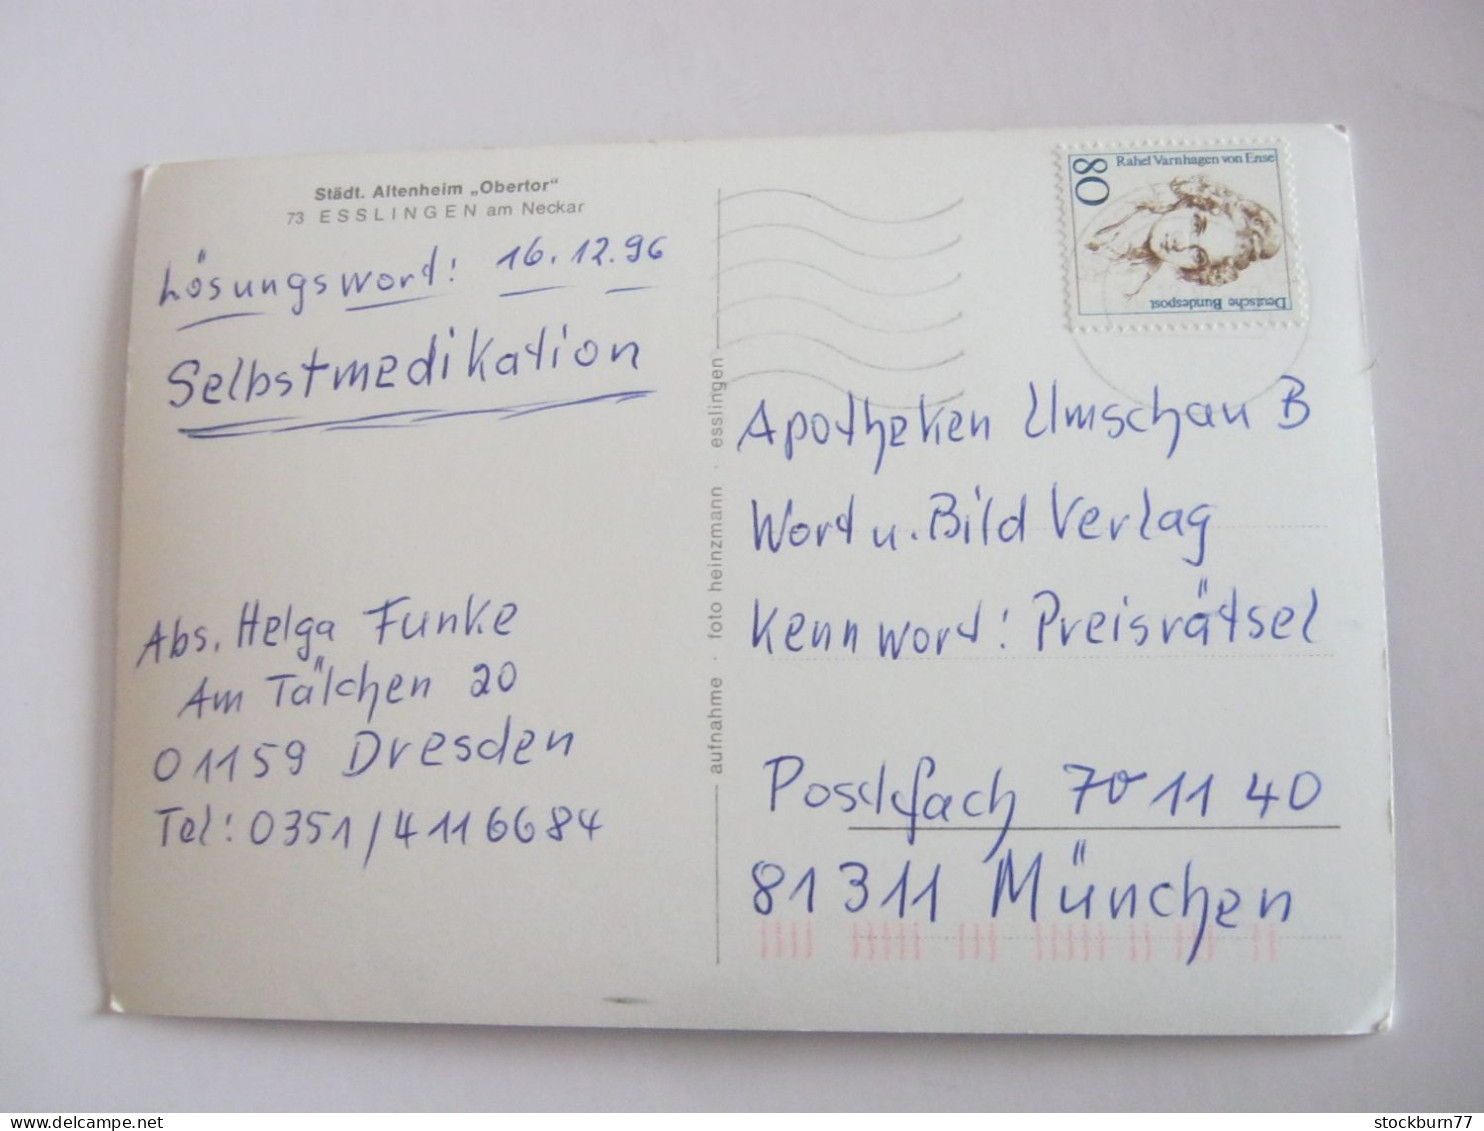 Städt. Altenheim „Obertor“
73 ESSLINGEN am Neckar
Lösungswort: 16.12.96
Selbstmedikation
Abs. Helga Funke
Am Tälchen 20
01159 Dresden
Tel: 0351/4116684
aufnahme · foto heinzmann · esslingen
80
Rahel Varnhagen von Ense
Deutsche Bundespost
Apotheken Umschau B
Wort u. Bild Verlag
Kennwort: Preisrätsel
Postfach 70 11 40
81311 München
delcampe.net
stockburn77